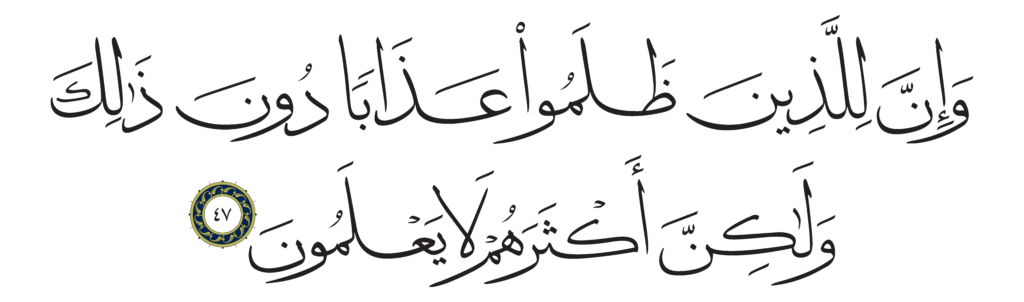 وَإِنَّ لِلَّذِينَ ظَلَمُوا۟ عَذَابًا دُونَ ذَٰلِكَ
وَلَٰكِنَّ أَكْثَرَهُمْ لَا يَعْلَمُونَ ٤٧